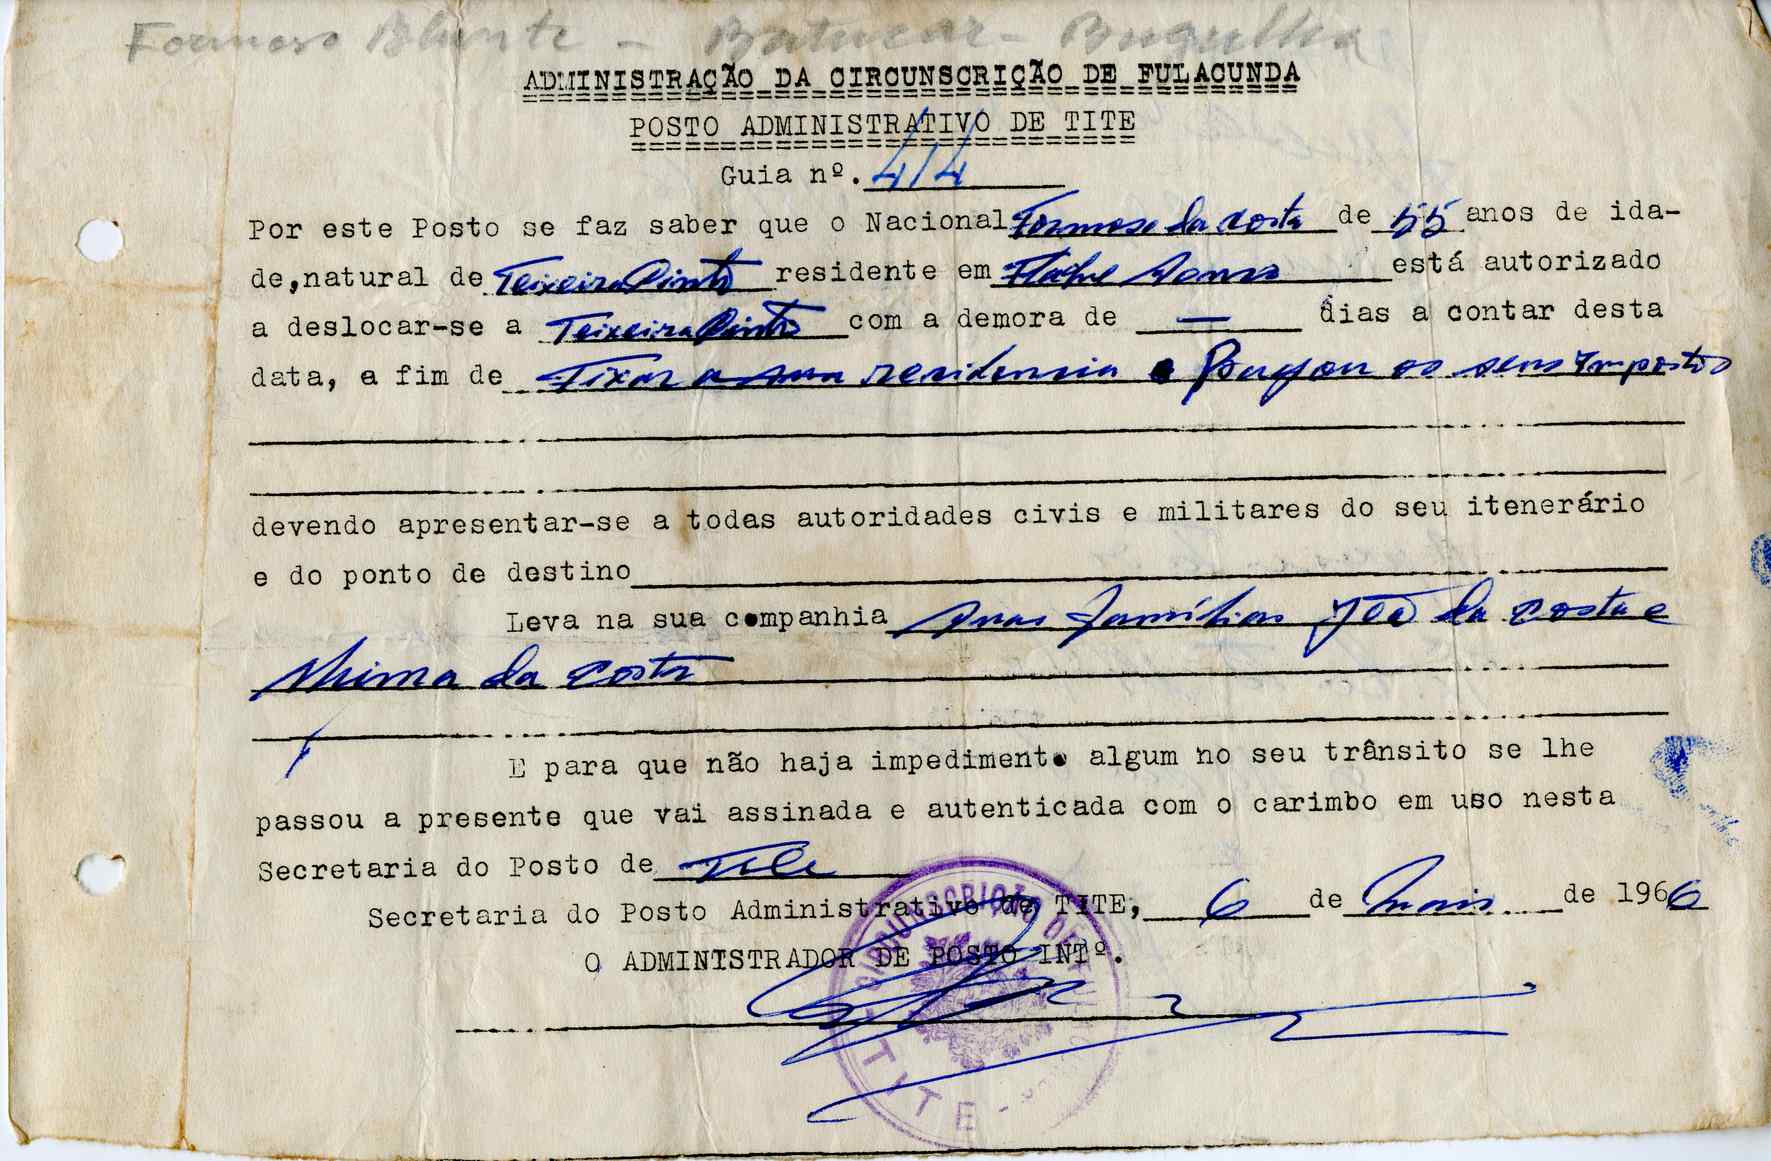 Formoso - Batucar - Buguilha
ADMINISTRAÇÃO DA CIRCUNSCRIÇÃO DE FULACUNDA
POSTO ADMINISTRATIVO DE TITE
Guia nº. 414
Por este Posto se faz saber que o Nacional Formoso da Costa de 55 anos de ida-
de, natural de Teixeira Pinto residente em está autorizado
a deslocar-se a Teixeira Pinto com a demora de — dias a contar desta
data, a fim de Fixar a sua residencia e Pagar os seus Impostos
devendo apresentar-se a todas autoridades civis e militares do seu itenerário
e do ponto de destino
Leva na sua companhia suas famílias da Costa e
da Costa
E para que não haja impedimento algum no seu trânsito se lhe
passou a presente que vai assinada e autenticada com o carimbo em uso nesta
Secretaria do Posto de Tite
Secretaria do Posto Administrativo de TITE, 6 de Maio de 1966
O ADMINISTRADOR DE POSTO INTº.
CIRCUNSCRIÇÃO DE
TITE